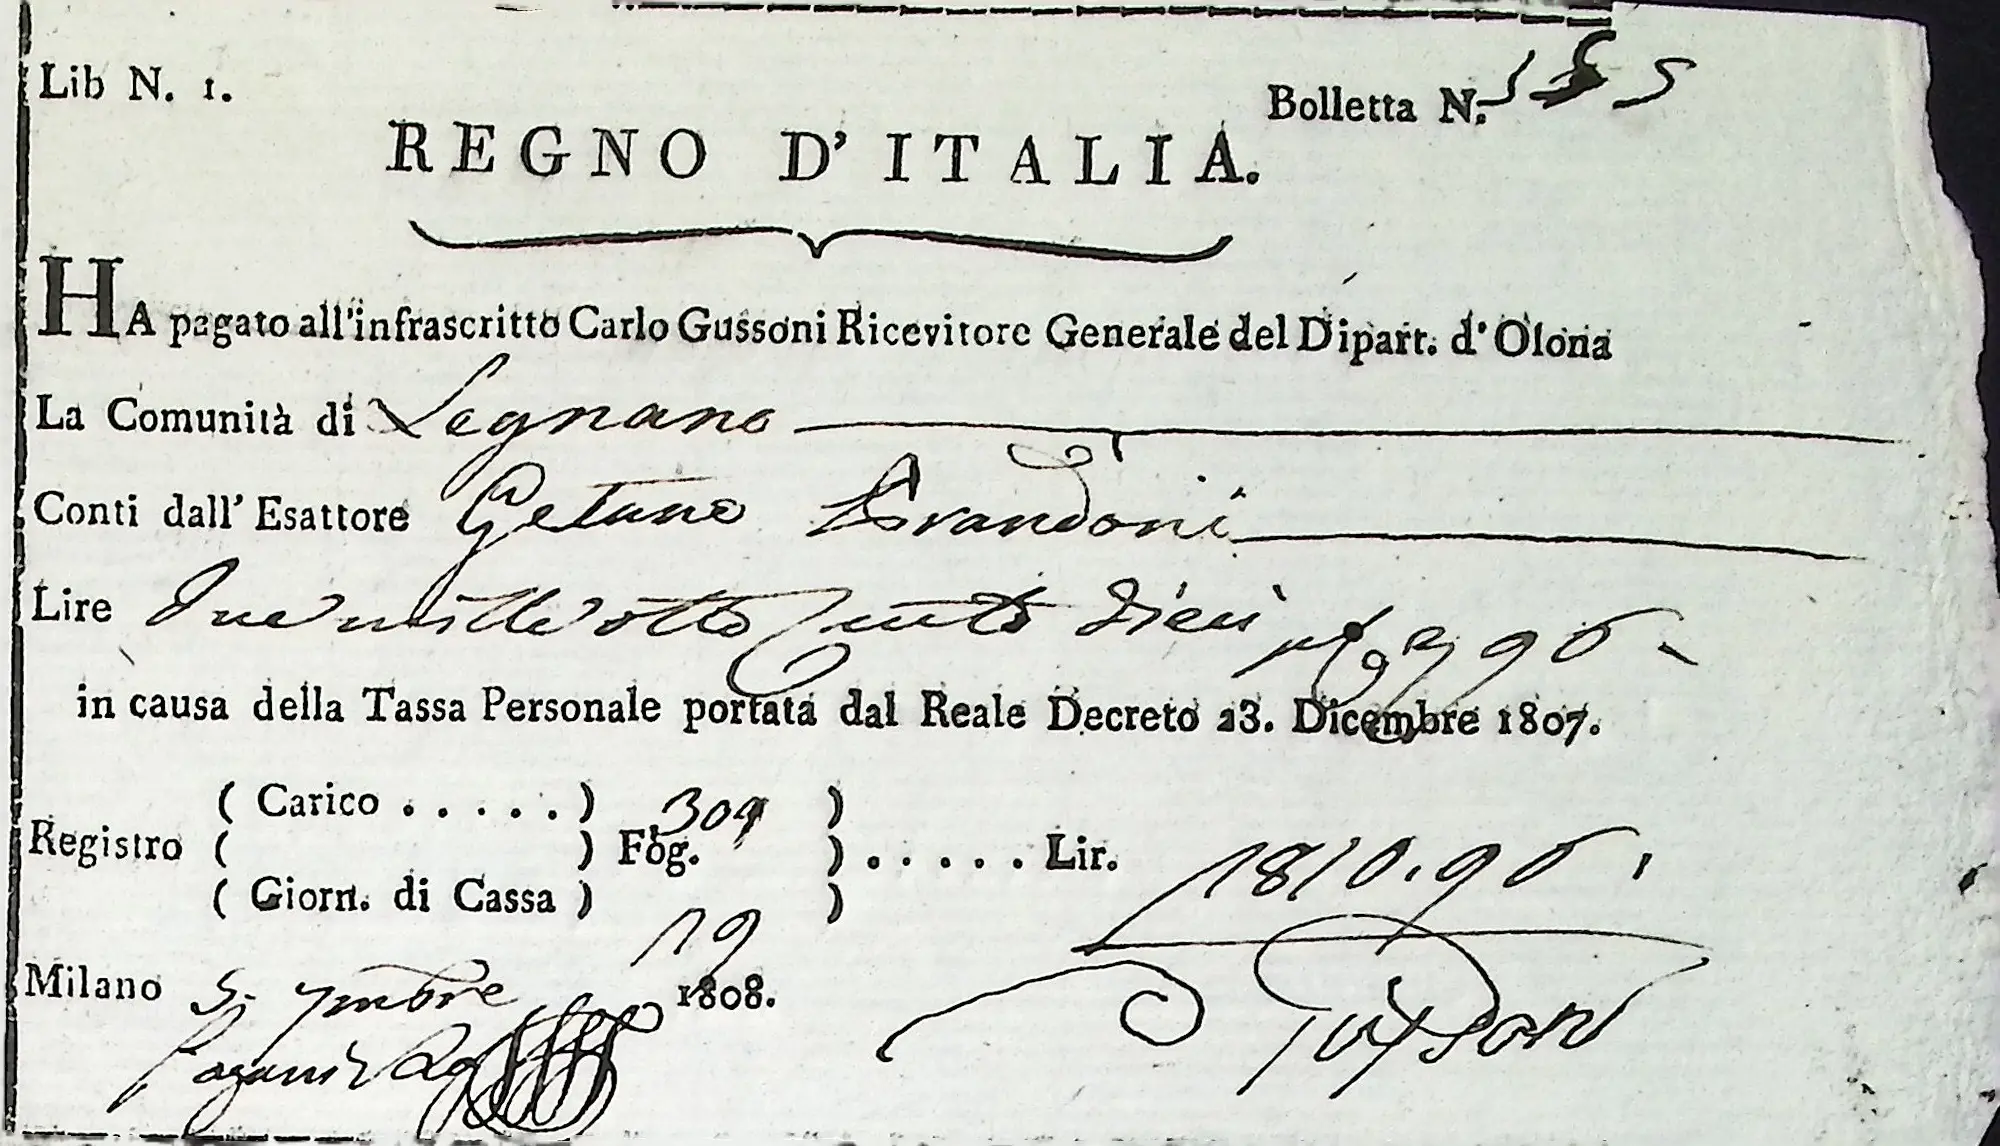 Lib N. 1.
Bolletta N. 155
REGNO D'ITALIA.
HA pagato all'infrascritto Carlo Gussoni Ricevitore Generale del Dipart. d'Olona
La Comunità di Legnano
Conti dall' Esattore Getano Brandoni
Lire due mille otto cento dieci 96
in causa della Tassa Personale portata dal Reale Decreto 23. Dicembre 1807.
( Carico . . . . . ) 309 )
Registro ( ) Fog. ) . . . . . Lir. 1810.96.
( Giorn. di Cassa ) 19 )
Milano 5. 7mbre 1808.
Gussoni